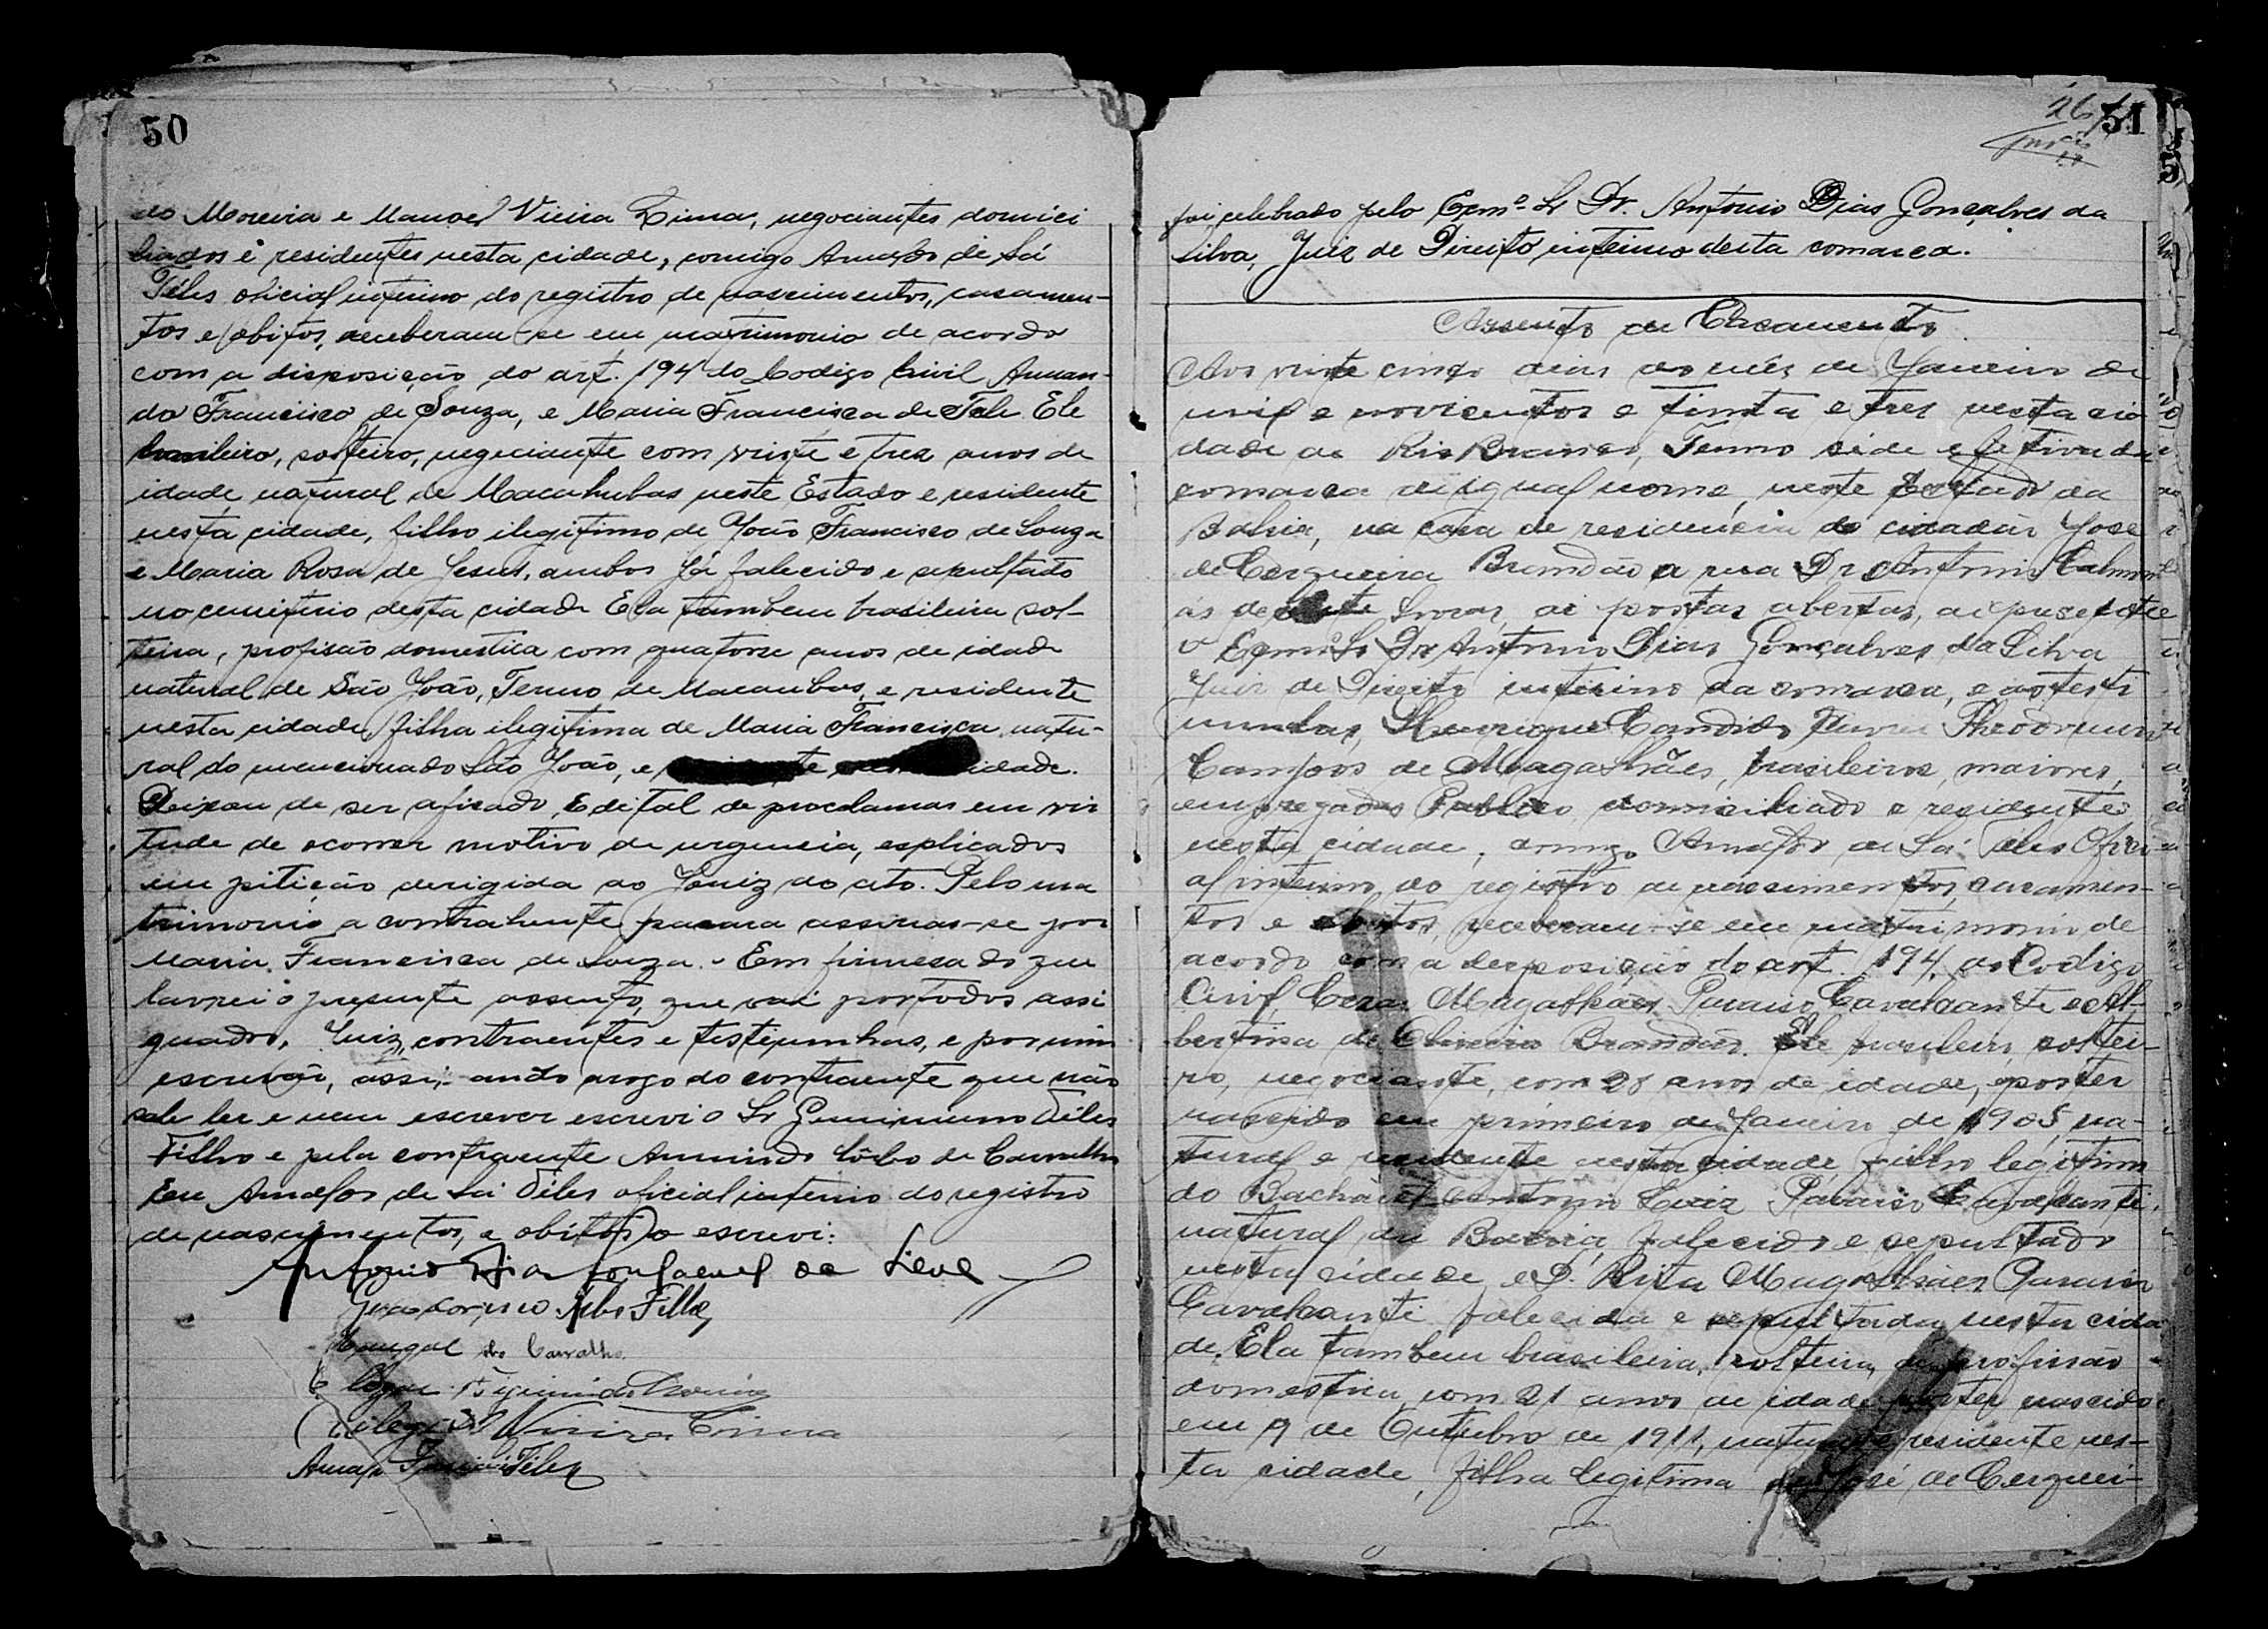 50
do Moreira e Manoel Vieira Lima, negociantes domici
liados e residentes nesta cidade, comigo Amafos de Sá
Téles oficial interino do registro de nascimentos, casamen-
tos e obitos, receberam-se em matrimonio de acordo
com a disposição do art. 194 do Codigo Civil Arman-
do Francisco de Souza, e Maria Francisca de Tale Ele
brasileiro, solteiro, negociante com vinte e tres anos de
idade, natural de Macahubas neste Estado e residente
nesta cidade, filho ilegitimo de João Francisco de Souza
e Maria Rosa de Jesus, ambos já falecido e sepultado
no cemiterio desta cidade Ela tambem brasileira sol-
teira, profissão domestica com quatorse anos de idade
natural de São João, Termo de Macaubas, e residente
nesta cidade, filha ilegitima de Maria Francisca natu-
ral do mencionado São João, e cidade.
Deixou de ser afixado, Edital de proclamas em vir
tude de ocorrer motivo de urgencia, explicados
em pitição derigida ao Juiz do ato. Pelo ma
trimonio a contrahente passara assinar-se por
Maria Francisca de Souza. Em firmesa do que
lavrei o presente assento, que vai por todos assi
gnados, Juiz, contraentes e testiumhas, e por mim
escrivão, assi-ando arogo do contraente que não
sabe ler e nem escrever escrevi o Sr Téles
Filho e pela contraente Lôbo de Carvalho
Eu Amafos de Sá Téles oficial interino do registro
de nascimentos, e obitos o escrevi:
Antonio Dias Gonsalves da Silva
Filho
do Carvalho
Vieira Lima
Téles
51
foi celebrado pelo Exmº Sr Dr. Antonio Dias Gonçalves da
Silva, Juiz de Direito interino desta comarca.
Assento de Casamento
Aos vinte cinco dias do mês de Janeiro de
mil e novicentos e trinta e tres nesta ci
dade de Rio Branco, Termo séde e fetiva da
comarca de igual nome, neste Estado da
Bahia, na casa de residencia do cidadão José
de Cerqueira Brandão a rua Dr Antonio Calmon
ás horas, ai portas abertas, ai presente
o Exmº Sr Dr Antonio Dias Gonçalves da Silva
Juiz de Direito interino da comarca, e as testi
munhas, Henrique Candido
Campos de Magalhães, brasileiros, maiores,
empregados Publico domiciliado e residente
nesta cidade, comigo Amafos de Sá Téles Ofici-
al interino do registro de nascimentos, casamen-
tos e obitos, receberam-se em matrimonio de
acordo com a desposição do art. 194, do Codigo
Civil, Cezar Magalhães Paraiso Cavalcante e Al-
bertina de Oliveira Brandão. Ele brasileiro soltei-
ro, negociante, com 28 anos de idade, por ter
nascido em primeiro de Janeiro de 1905, na-
tural e residente nesta cidade, filho legitimo
do Bacharel Antonio Luiz Paraiso Cavalcanti,
natural da Bahia, falecido e sepultado
nesta cidade, e D. Rita Magalhães Paraiso
Cavalcanti falecida e sepultada nesta cida
de. Ela tambem brasileira, solteira, de profissão
domestica, com 21 anos de idade por ter nascido
em 9 de Outubro de 1911, natural e residente nes-
ta cidade, filha legitima de José de Cerquei-